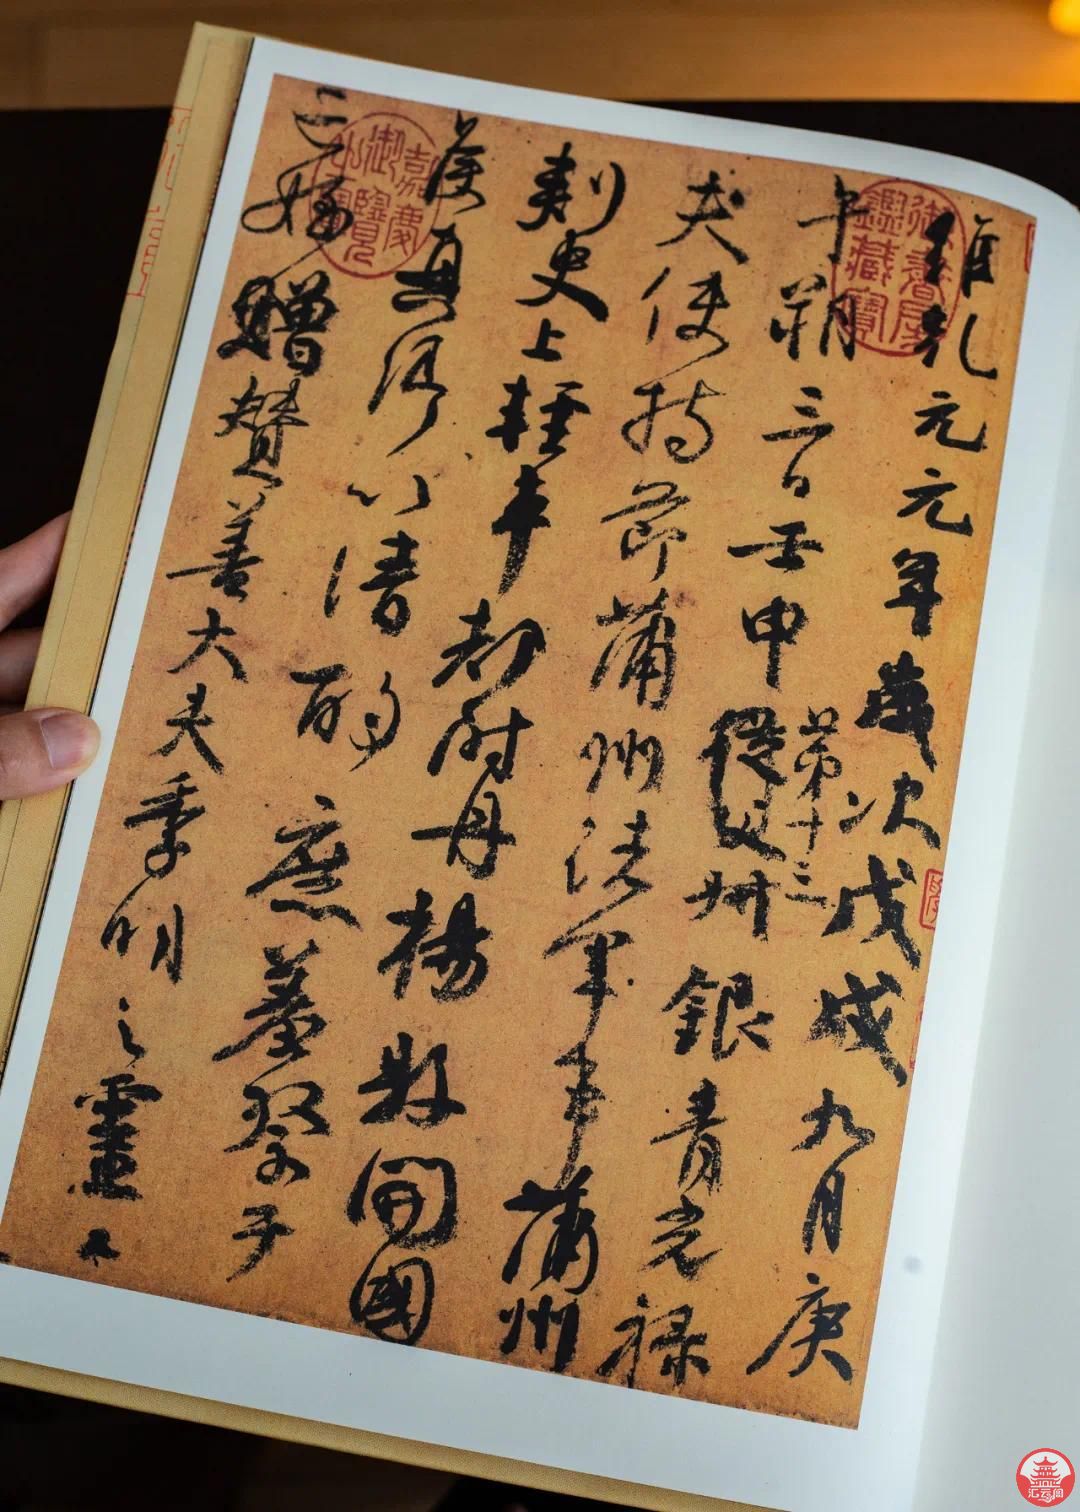 維乾元元年歲次戊戌九月庚
午朔三日壬申從父叔銀青光禄
第十三
夫使持節蒲州諸軍事蒲州
刺史上輕車都尉丹楊縣開國
侯真卿以清酌庶羞祭于
亡姪贈贊善大夫季明之靈曰
御書房鑑藏寶
嘉慶御覽之寶
汇云阁